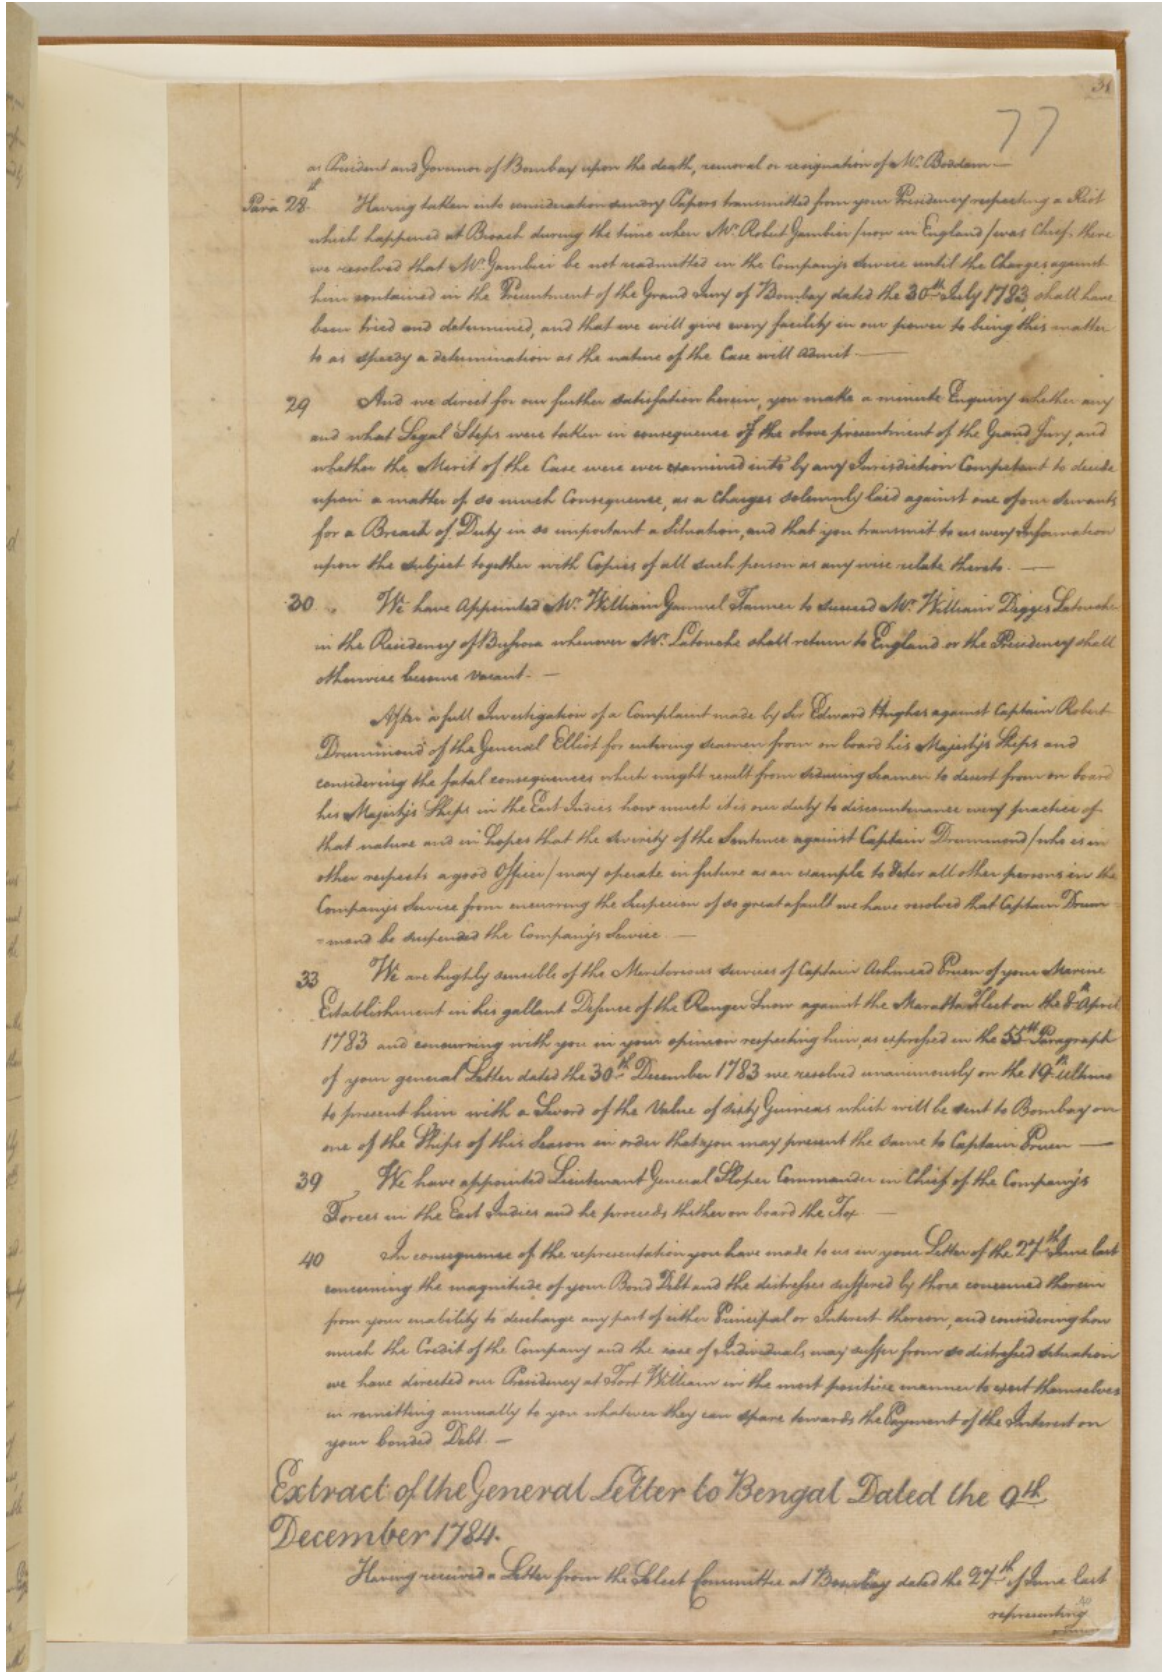 77
as President and Governor of Bombay upon the death, removal or resignation of Mr. Boddam —
Para 28th. Having taken into consideration sundry Papers transmitted from your Presidency respecting a Riot
which happened at Broach during the time when Mr. Robert Gambier /now in England/ was Chief there
we resolved that Mr. Gambier be not readmitted in the Company's Service until the Charges against
him contained in the Presentment of the Grand Jury of Bombay dated the 30th July 1783, shall have
been tried and determined, and that we will give every facility in our power to bring this matter
to as speedy a determination as the nature of the Case will admit. —
29 And we direct for our further satisfation herein, you make a minute Enquiry whether any
and what Legal Steps were taken in consequence of the above presentment of the Grand Jury, and
whether the Merit of the Case were ever examined into by any Jurisdiction Competant to decide
upon a matter of so much Consequence, as a Charges solemnly laid against one of our Servants
for a Breach of Duty in so important a Situation, and that you transmit to us every Information
upon the subject together with Copies of all such person as any wise relate thereto. —
30. We have Appointed Mr. William Gummel Tanner to succeed Mr. William Digges Latouche
in the Residency of Bussora whenever Mr. Latouche shall return to England or the Presidency shall
otherwise become vacant. —
After a full Investigation of a Complaint made by Sir Edward Hughes against Captain Robert
Drummond of the General Elliot for entering seamen from on board his Majesty's Ships and
considering the fatal consequences which might result from seducing Seamen to desert from on board
his Majesty's Ships in the East Indies how much it is our duty to discountenance every practice of
that nature and in hopes that the severity of the Sentence against Captain Drummond /who is in
other respects a good Officer/ may operate in future as an example to deter all other persons in the
Company's Service from incurring the Suspicion of so great a fault we have resolved that Captain Drum
=mond be suspended the Company's Service. —
33 We are highly sensible of the Meritorious services of Captain Ashmead Pruen of your Marine
Establishment in his gallant Defence of the Ranger Snow against the Maratta Fleet on the 8th April
1783 and concurring with you in your opinion respecting him, as expressed in the 55th Paragraph
of your general Letter dated the 30th December 1783 we resolved unanimously on the 19th ultimo
to present him with a Sword of the Value of sixty Guineas which will be sent to Bombay on
one of the Ships of this Season in order that you may present the same to Captain Pruen —
39 We have appointed Lieutenant General Sloper Commander in Chief of the Company's
Forces in the East Indies and he proceeds thither on board the Fox. —
40 In consequence of the representation you have made to us in your Letter of the 27th June last
concerning the magnitude of your Bond Debt and the distresses suffered by those concerned therein
from your inability to discharge any part of either Principal or Interest thereon, and considering how
much the Credit of the Company and the ease of Individuals may suffer from so distressed situation
we have directed our Presidency at Fort William in the most positive manner to exert themselves
in remitting annually to you whatever they can spare towards the Payment of the Interest on
your bonded Debt. —
Extract of the General Letter to Bengal Dated the 9th
December 1784.
Having received a Letter from the Select Committee at Bombay dated the 27th of June last
representing